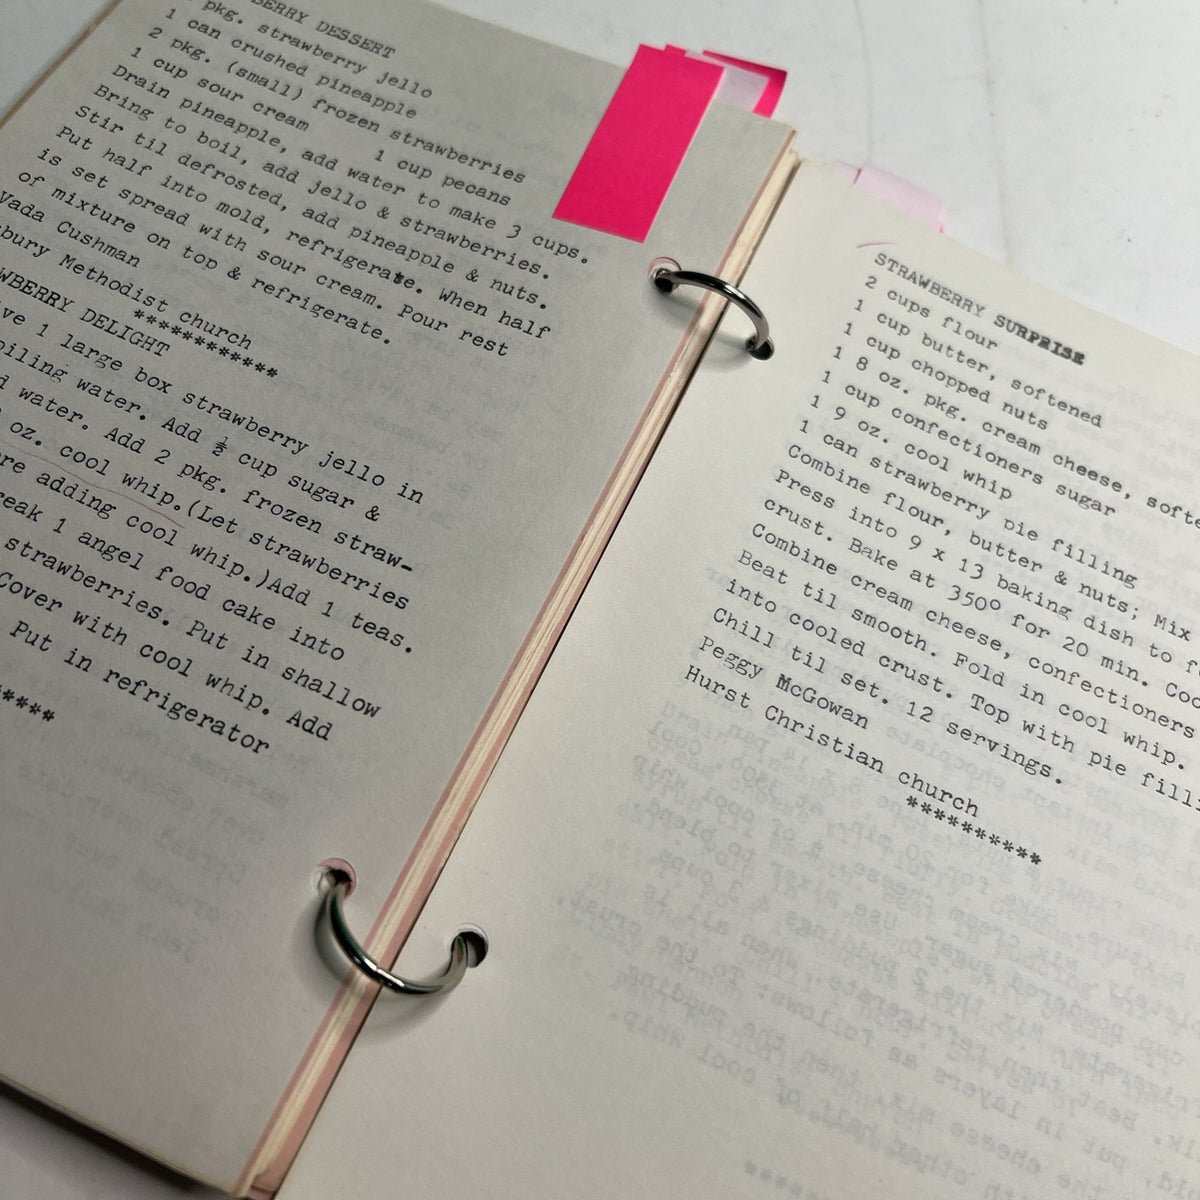 BERRY DESSERT
pkg. strawberry jello
1 can crushed pineapple
2 pkg. (small) frozen strawberries
1 cup sour cream 1 cup pecans
Drain pineapple, add water to make 3 cups.
Bring to boil, add jello & strawberries.
Stir til defrosted, add pineapple & nuts.
Put half into mold, refrigerate. When half
is set spread with sour cream. Pour rest
of mixture on top & refrigerate.
Vada Cushman
bury Methodist church
***********
WBERRY DELIGHT
ve 1 large box strawberry jello in
oiling water. Add ½ cup sugar &
d water. Add 2 pkg. frozen straw-
oz. cool whip.(Let strawberries
re adding cool whip.)Add 1 teas.
reak 1 angel food cake into
strawberries. Put in shallow
Cover with cool whip. Add
Put in refrigerator
*****
STRAWBERRY SURPRISE
2 cups flour
1 cup butter, softened
1 cup chopped nuts
1 8 oz. pkg. cream cheese, softe
1 cup confectioners sugar
1 9 oz. cool whip
1 can strawberry pie filling
Combine flour, butter & nuts; Mix
Press into 9 x 13 baking dish to f
crust. Bake at 350° for 20 min. Coo
Combine cream cheese, confectioners
Beat til smooth. Fold in cool whip.
into cooled crust. Top with pie filli
Chill til set. 12 servings.
Peggy McGowan
Hurst Christian church
**********